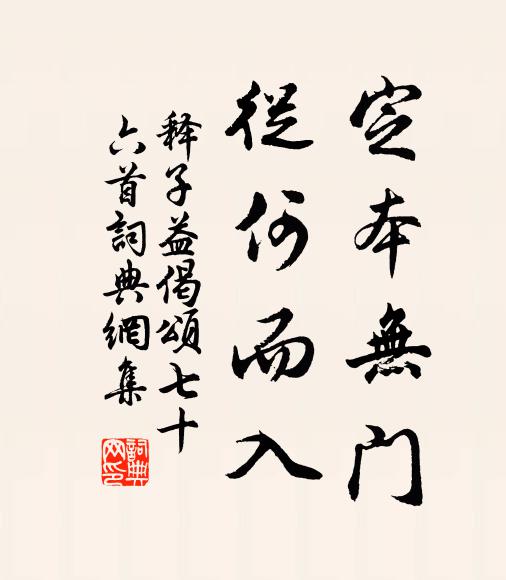 定本無門
從何而入
释子益偈頌七十
六首詞典網集
詞典
网印